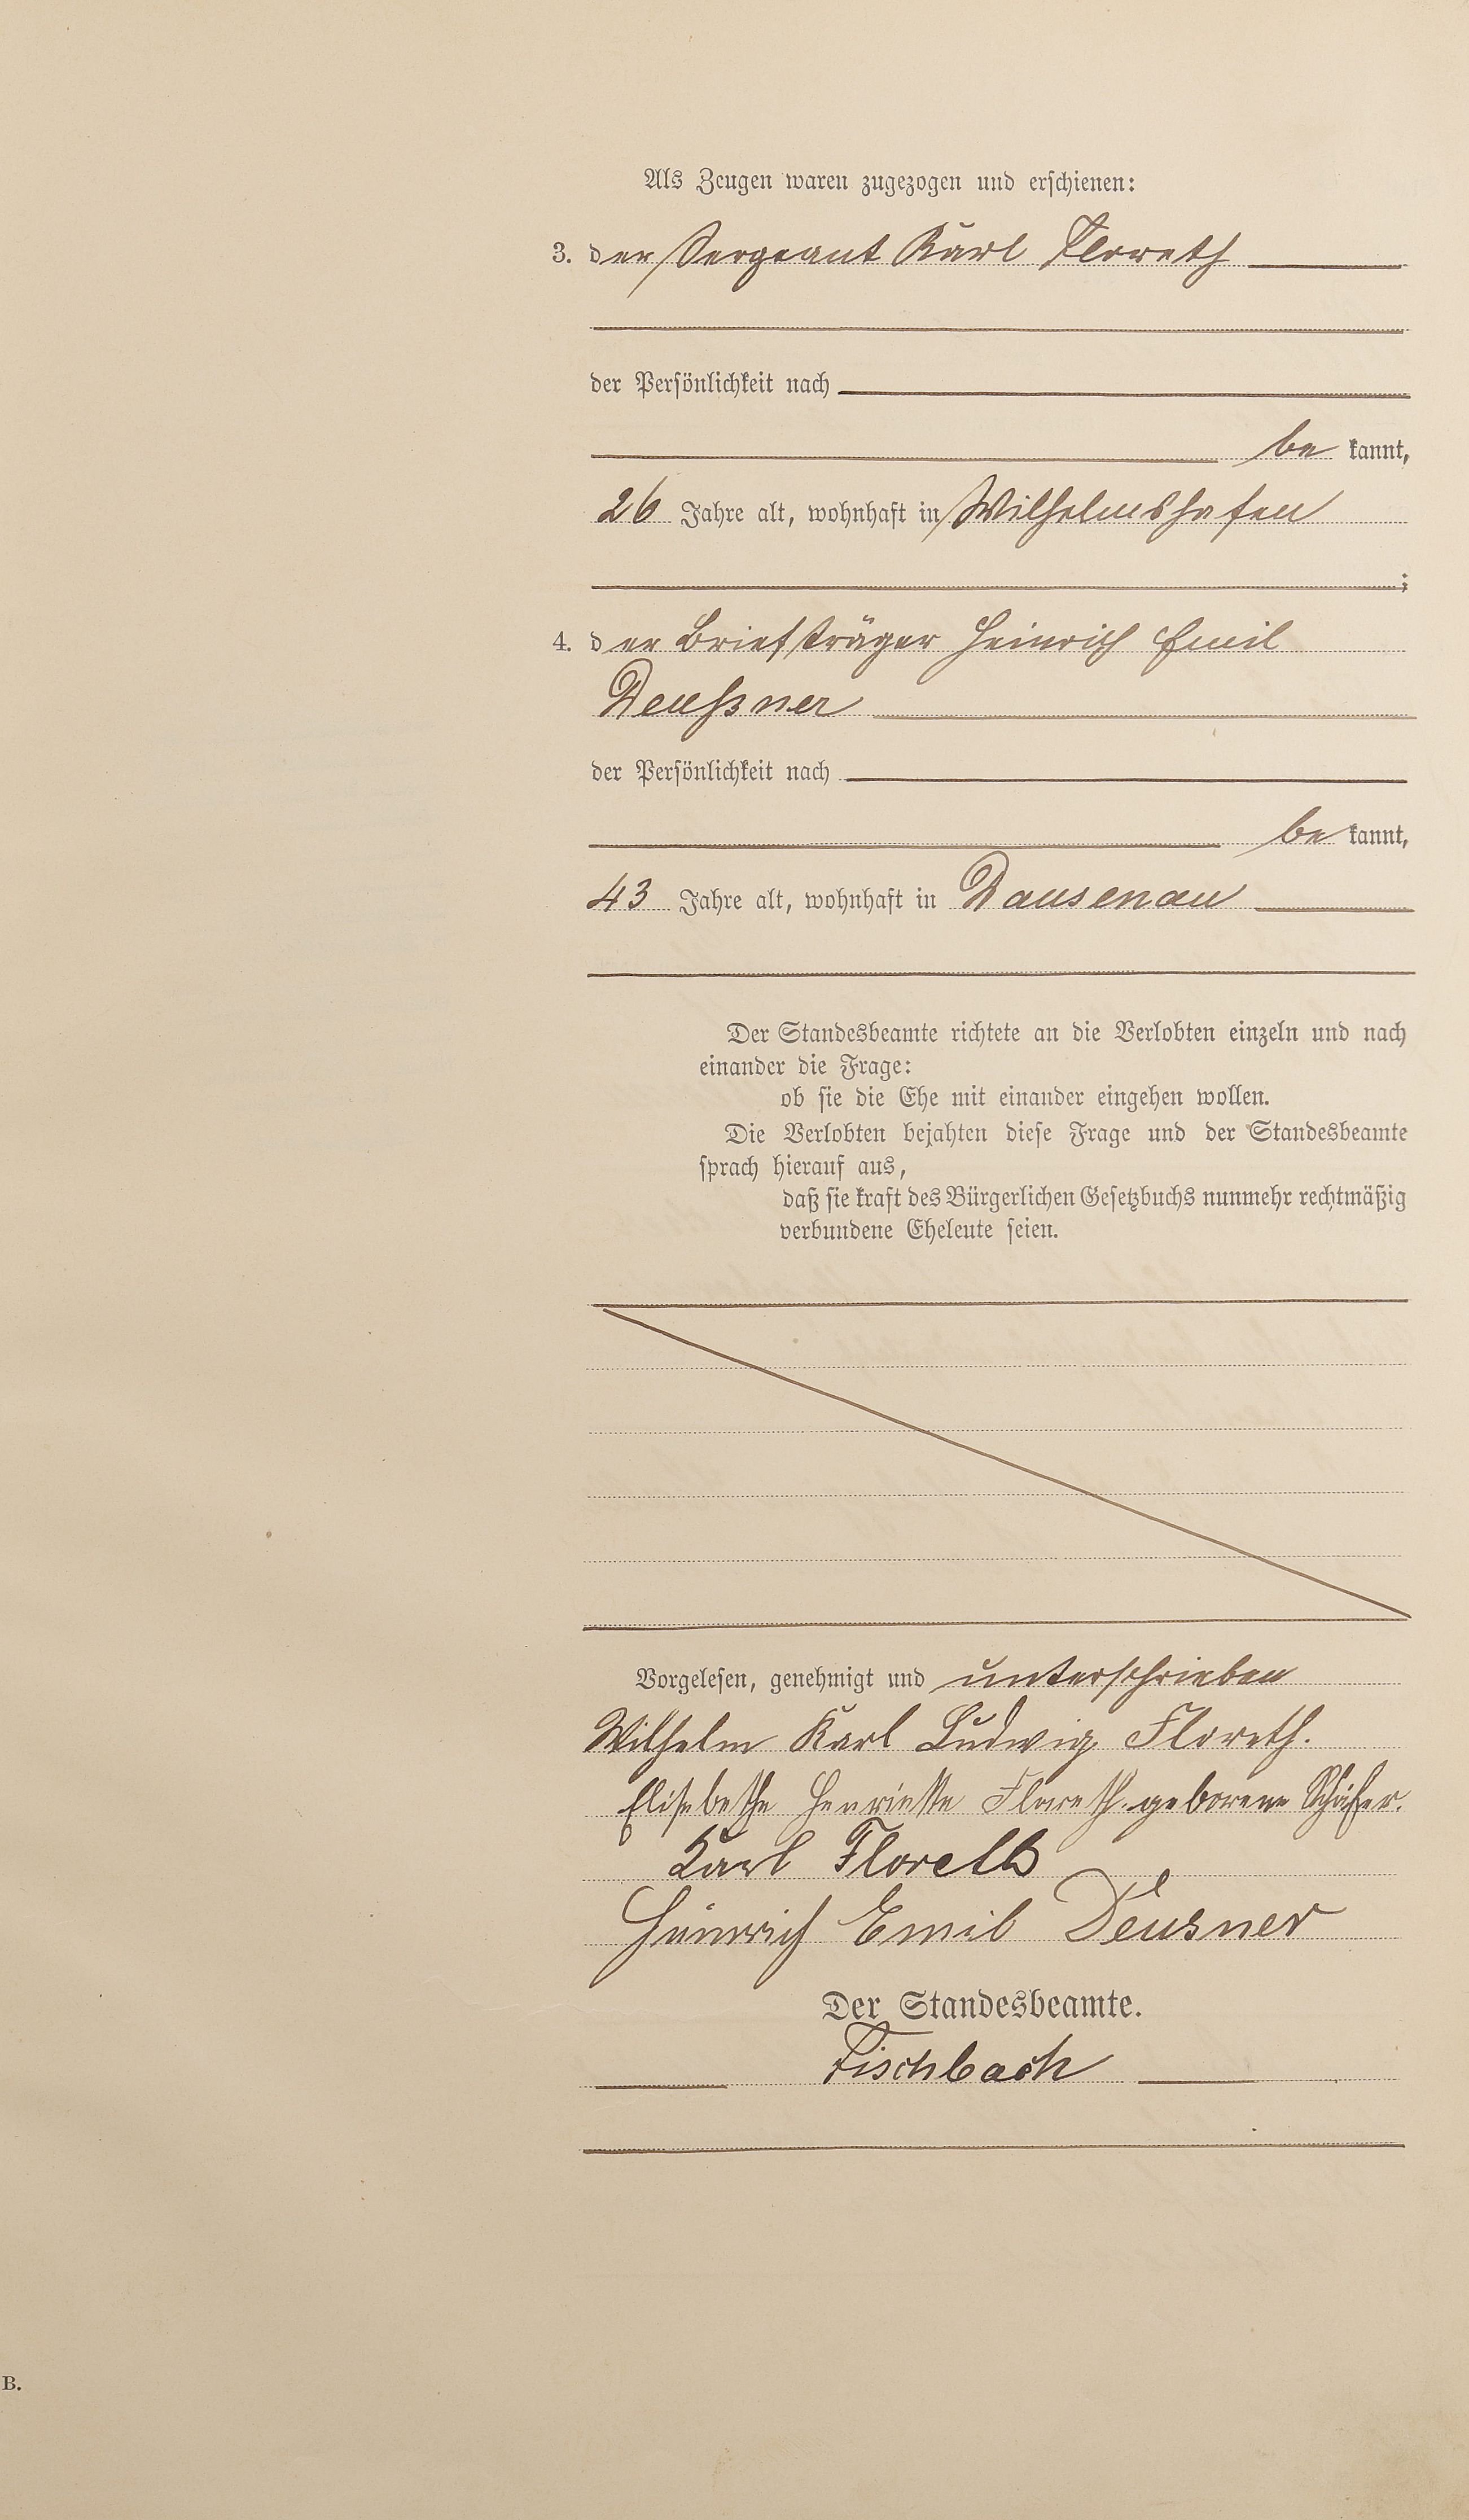 Als Zeugen waren zugezogen und erschienen:
3. der Sergeant Karl Floreth
der Persönlichkeit nach
be kannt,
26 Jahre alt, wohnhaft in Wilhelmshafen
;
4. der Briefträger Heinrich Emil
Deußner
der Persönlichkeit nach
be kannt,
43 Jahre alt, wohnhaft in Dausenau
Der Standesbeamte richtete an die Verlobten einzeln und nach
einander die Frage:
ob sie die Ehe mit einander eingehen wollen.
Die Verlobten bejahten diese Frage und der Standesbeamte
sprach hierauf aus,
daß sie kraft des Bürgerlichen Gesetzbuchs nunmehr rechtmäßig
verbundene Eheleute seien.
Vorgelesen, genehmigt und unterschrieben
Wilhelm Karl Ludwig Floreth.
Elisabethe Henriette Floreth. geborene Schäfer.
Karl Floreth
Heinrich Emil Deusner
Der Standesbeamte.
Fischbach
B.